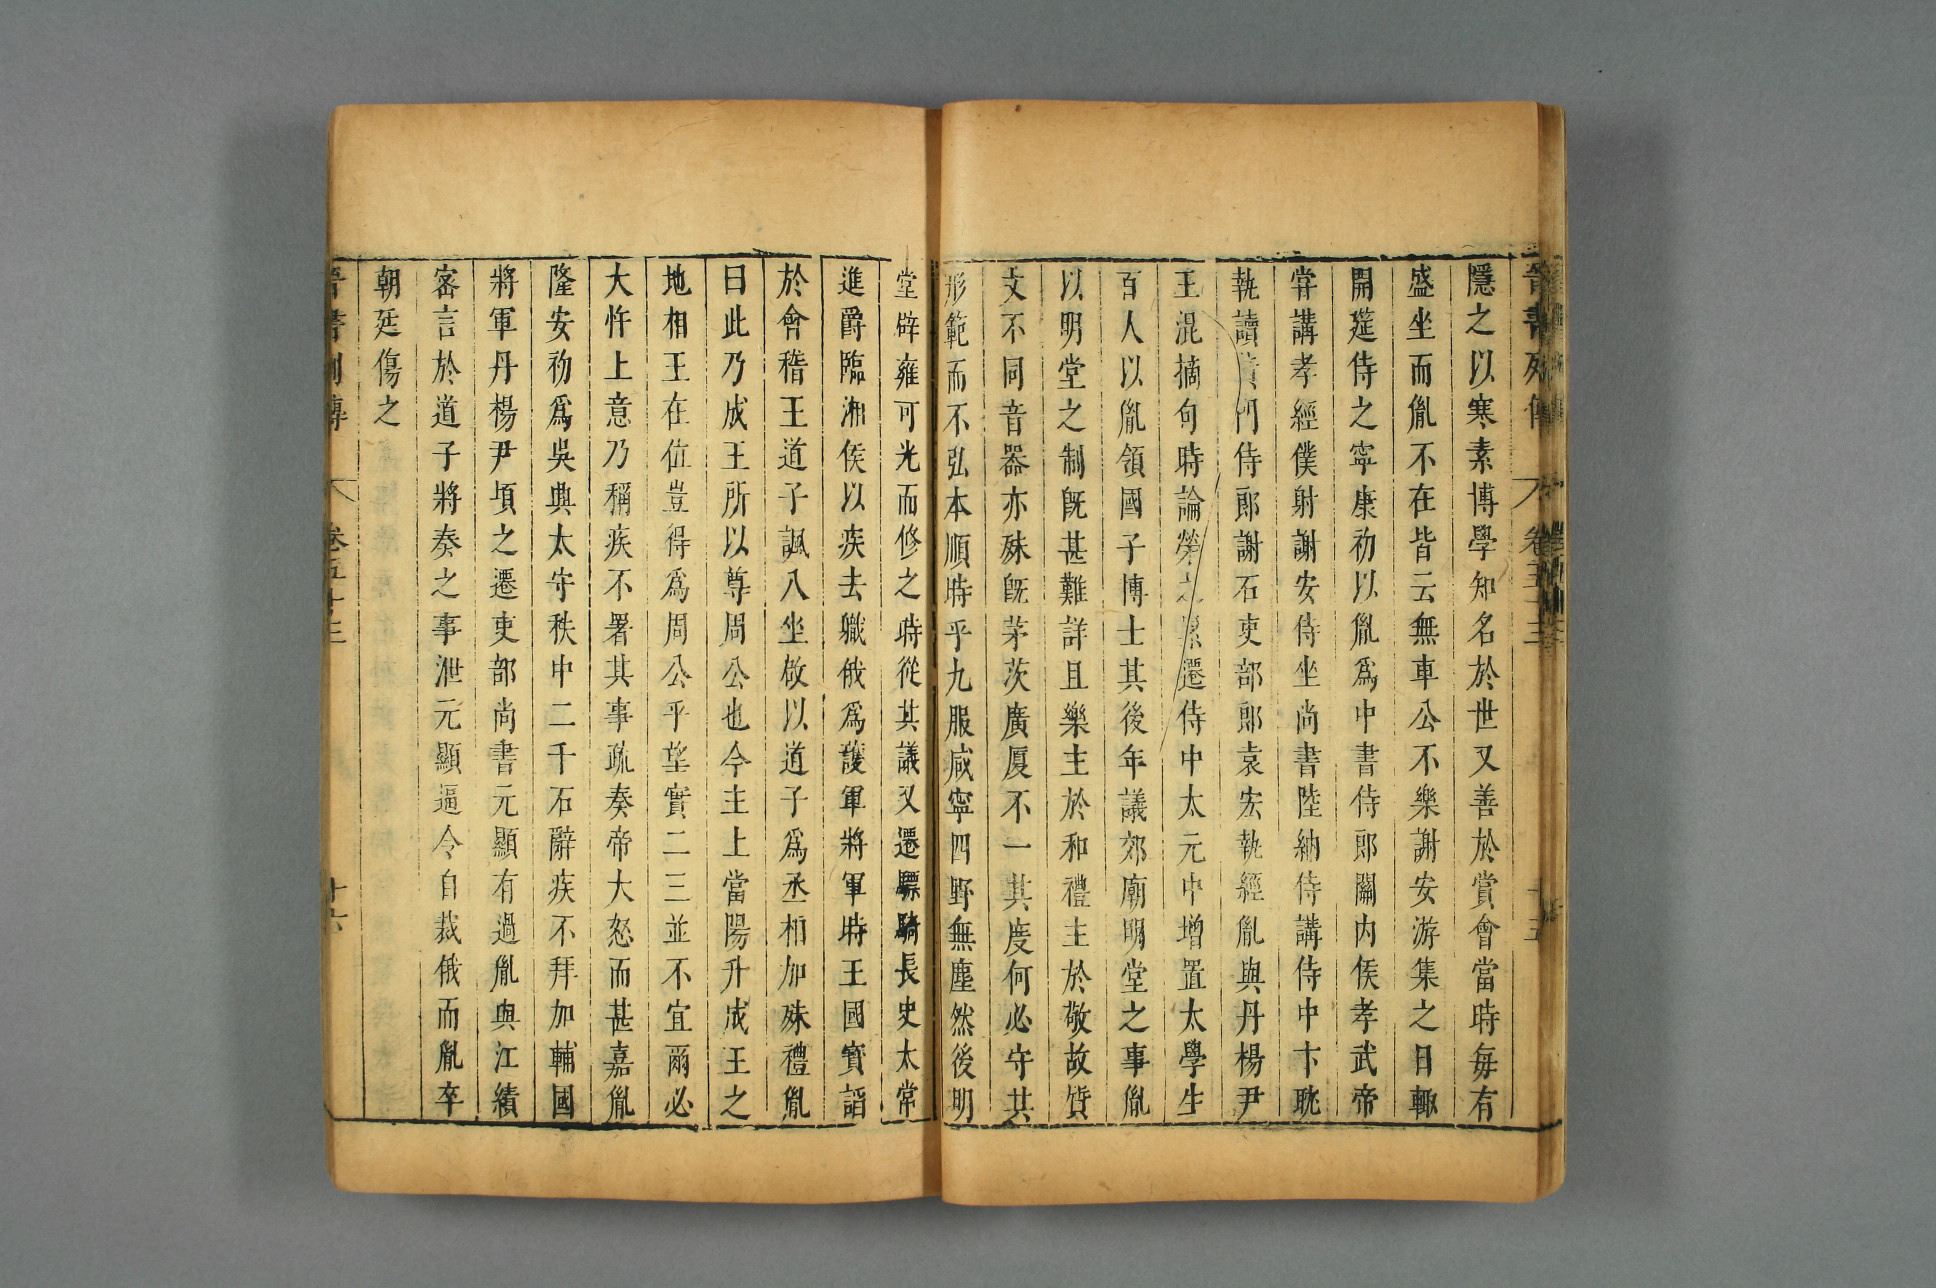 晉書列傳 卷五十三 十五
隱之以寒素博學知名於世又善於賞會當時每有
盛坐而胤不在皆云無車公不樂謝安游集之日輙
開筵侍之寧康初以胤爲中書侍郎關内侯孝武帝
甞講孝經僕射謝安侍坐尚書陸納侍講侍中卞眈
執讀黃門侍郎謝石吏部郎袁宏執經胤與丹楊尹
王混摘句時論榮之累遷侍中太元中增置太學生
百人以胤領國子博士其後年議郊廟明堂之事胤
以明堂之制既甚難詳且樂主於和禮主於敬故質
文不同音器亦殊既茅茨廣厦不一其度何必守其
形範而不弘本順時乎九服咸寧四野無塵然後明
堂辟雍可光而修之時從其議又遷驃騎長史太常
進爵臨湘侯以疾去職俄爲護軍將軍時王國寶謟
於會稽王道子諷八坐啟以道子爲丞相加殊禮胤
曰此乃成王所以尊周公也今主上當陽升成王之
地相王在位豈得爲周公乎望實二三並不宜爾必
大忤上意乃稱疾不署其事疏奏帝大怒而甚嘉胤
隆安初爲吳興太守秩中二千石辭疾不拜加輔國
將軍丹楊尹頃之遷吏部尚書元顯有過胤與江績
密言於道子將奏之事泄元顯逼令自裁俄而胤卒
朝廷傷之
晉書列傳 卷五十三 十六